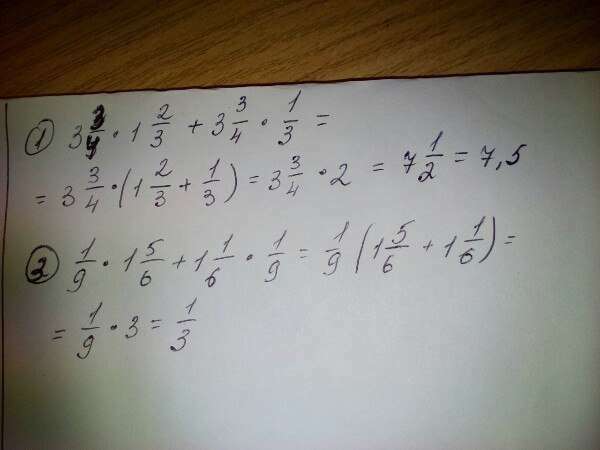 ① 3 3/4 · 1 2/3 + 3 3/4 · 1/3 =
= 3 3/4 · (1 2/3 + 1/3) = 3 3/4 · 2 = 7 1/2 = 7,5
② 1/9 · 1 5/6 + 1 1/6 · 1/9 = 1/9 (1 5/6 + 1 1/6) =
= 1/9 · 3 = 1/3